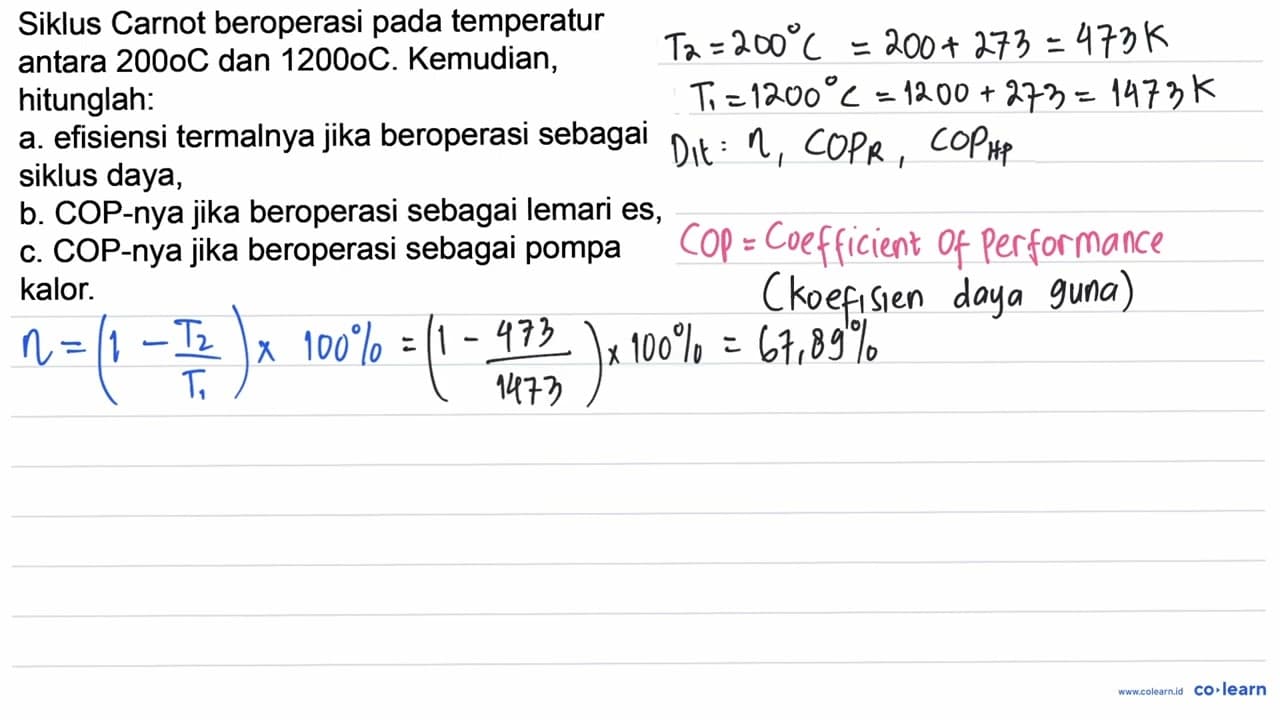 Siklus Carnot beroperasi pada temperatur
antara 200oC dan 1200oC. Kemudian,
hitunglah:
a. efisiensi termalnya jika beroperasi sebagai
siklus daya,
b. COP-nya jika beroperasi sebagai lemari es,
c. COP-nya jika beroperasi sebagai pompa
kalor.
T₂ = 200°C = 200 + 273 = 473 K
T₁ = 1200°C = 1200 + 273 = 1473 K
Dit : η, COP_R, COP_HP
COP = Coefficient Of Performance
(koefisien daya guna)
η = (1 - T₂/T₁) x 100% = (1 - 473/1473) x 100% = 67,89%
www.colearn.id co·learn